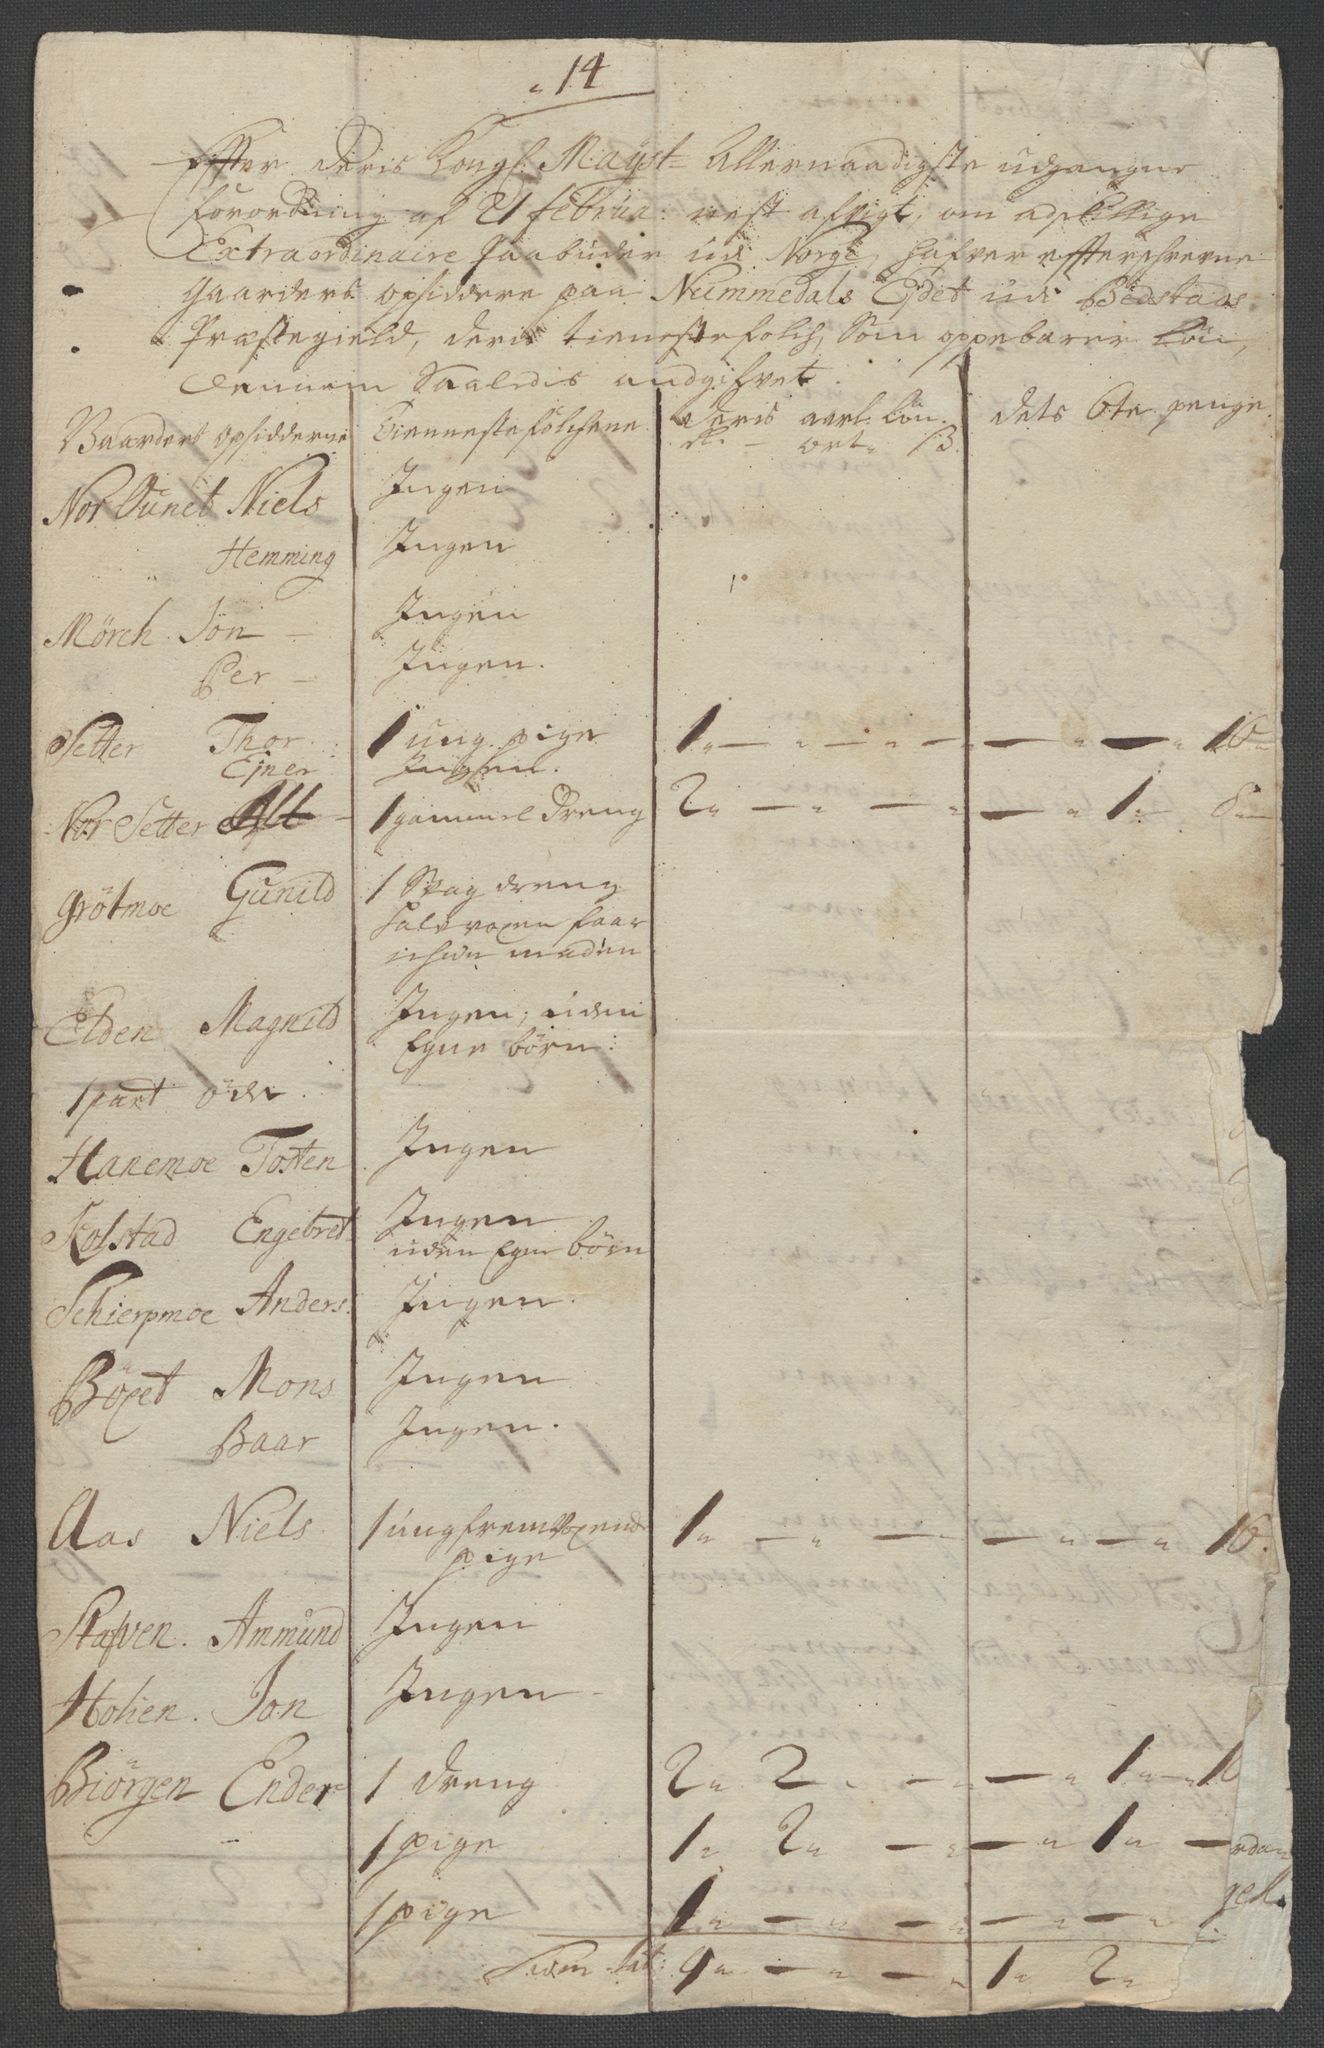 14
Effter Deris Kongl. Mayst= Allernaadigste udgangne
forordning af 21 februa: nest afvigt, om adskillige
Extraordinaire Paabuder udi Norge, hafver effterschrevne
Gaarders opsiddere paa Nummedals Eydet udi Bedstads
Præstegield, deris tienestefolch, Som oppebærer Løn,
dennem Saaledis andgifvet.
Gaarders opsidderne Tienneste folchene Deris aarl: Løn. dets 6te penge.
rdr – ort. ß.
Nor Sunet Niels Ingen
Hemming Ingen
Mørch Jon – Ingen
Per – Ingen.
Setter Thor 1 ung. pige 1" – " – " – – " – " 16"
Ejner Ingen.
Nor Setter 1 gammel dreng 2" – " – " – " 1" 8"
Grötmoe Gunild 1 Svag dreng
halfvoxen faar
ichun maden
Elden Magnild Ingen, uden
Egne börn:
1 part öde.
Hanemoe Tosten Ingen
Kolstad Engebret Ingen
uden Egne börn
Schierpmoe Anders. Ingen.
Böxet Mons Ingen
Baar Ingen.
Aas Niels 1 ung fremvoxende 1" – " – " – " – " 16.
pige
Stafven. Ammund Ingen
Holien. Jon Ingen –
Biörgen Ender 1 dreng 2" 2 " – " – " 1" 1
1 pige 1" 2" – " – " 1" –
1 pige 1" – " – " – " – "
Lat: 9" – " – " 1" 2"